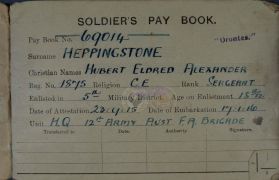 SOLDIER'S PAY BOOK.
Pay Book No. 69014 "Orontes."
Surname HEPPINGSTONE
Christian Names Hubert Eldred Alexander
Reg. No. 1575 Religion C.E Rank SERGEANT
Enlisted in 5th Military District Age on Enlistment
Date of Attestation Date of Embarkation
Unit H.Q 12th ARMY AUST F.A. BRIGADE
Transferred to Date Authority Signature.